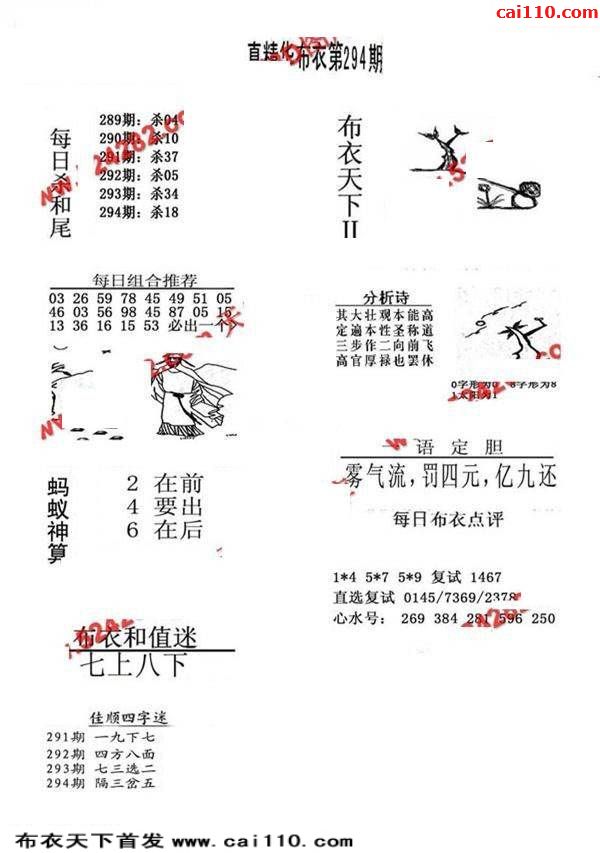 cai110.com
直精华布衣第294期
每日杀和尾
289期：杀04
290期：杀10
291期：杀37
292期：杀05
293期：杀34
294期：杀18
布衣天下II
每日组合推荐
03 26 59 78 45 49 51 05
46 03 56 98 45 87 05 15
13 36 16 15 53 必出一个
分析诗
其大壮观本能高
定遍本性圣称道
三步作二向前飞
高官厚禄也罢休
0字形为0 8字形为8
1太阳为1
一语定胆
雾气流,罚四元,亿九还
蚂蚁神算
2 在前
4 要出
6 在后
每日布衣点评
1*4 5*7 5*9 复试 1467
直选复试 0145/7369/2378
心水号： 269 384 281 596 250
布衣和值迷
七上八下
佳顺四字迷
291期 一九下七
292期 四方八面
293期 七三选二
294期 隔三岔五
布衣天下首发 www.cai110.com